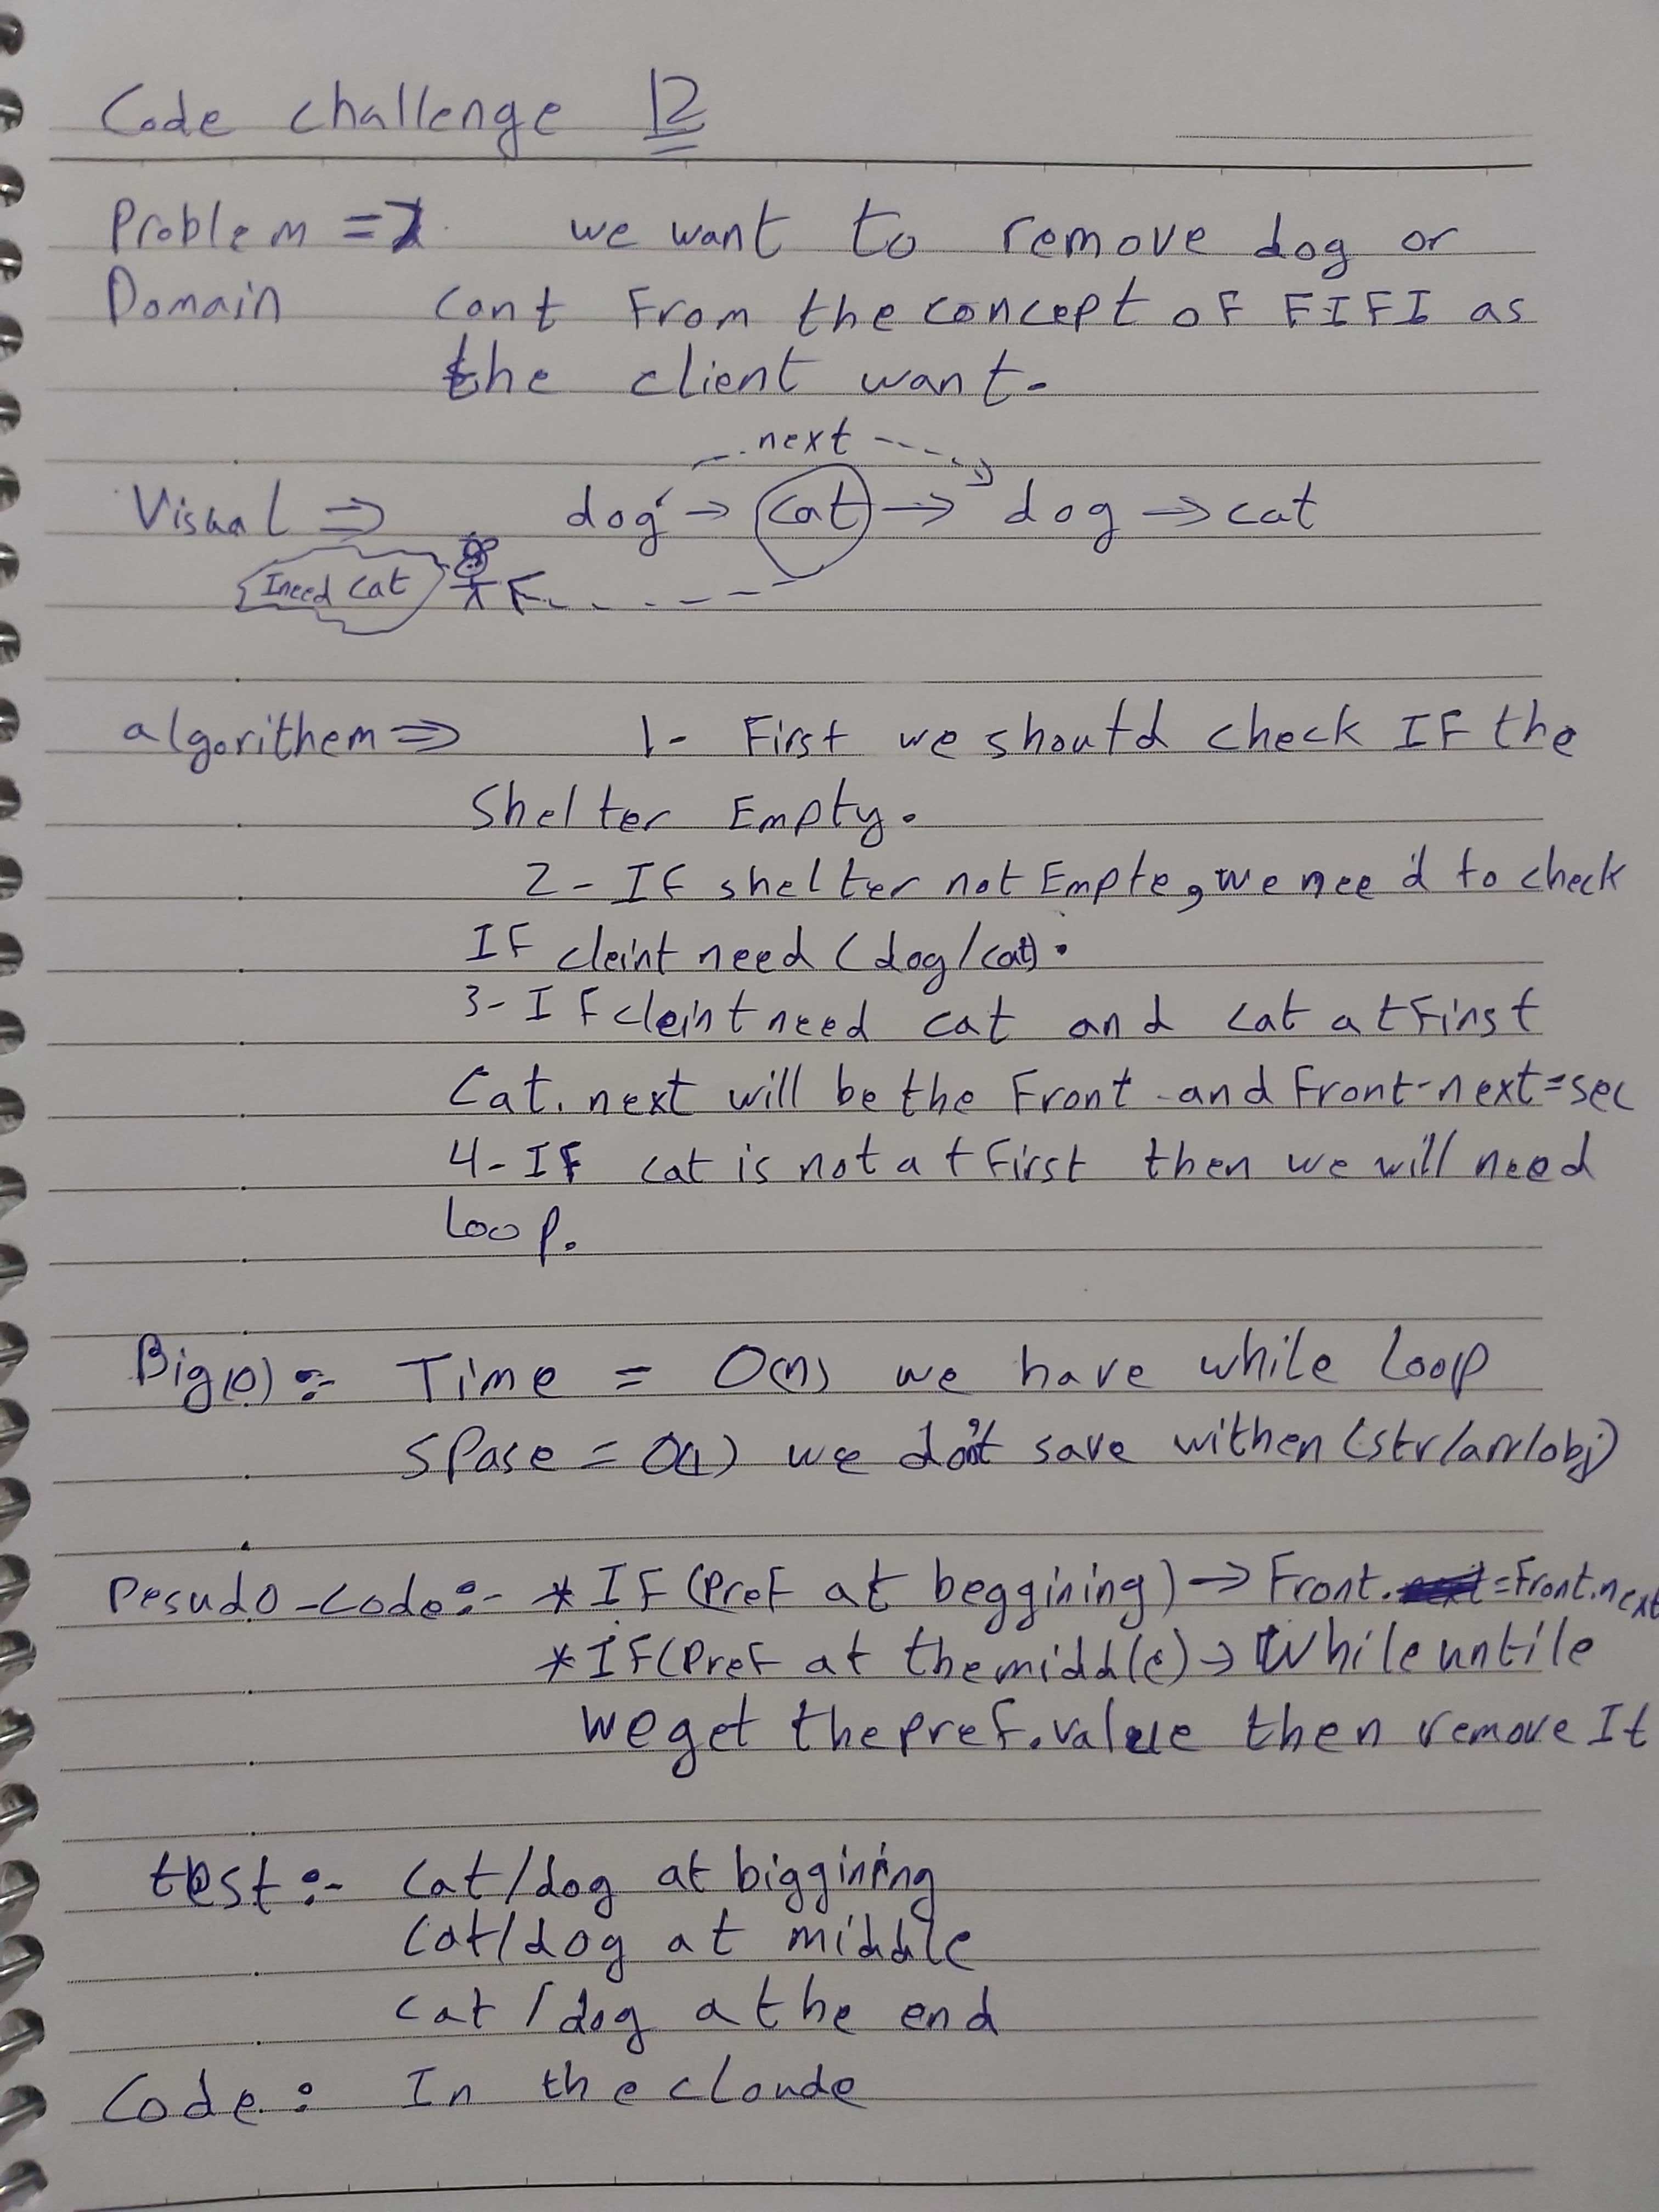 Code challenge 12
Problem => we want to remove dog or
Domain cant From the concept of FIFI as
the client want.
next
Visual => dog -> cat -> dog -> cat
I need cat
algorithem => 1- First we should check IF the
Shelter Empty.
2- IF shelter not Empte, we need to check
IF cleint need (dog/cat).
3- IF cleint need cat and cat at First
Cat. next will be the Front and Front.next=sec
4- IF cat is not at First then we will need
Loop.
Big(o) :- Time = O(n) we have while loop
SPase = O(1) we don't save withen (str/arr/obj)
Pesudo-code:- * IF (Pref at beggining) -> Front. = Front.next
* IF (Pref at the middle) -> While untile
we get the pref.value then remove It
test :- Cat/dog at biggining
Cat/dog at middle
cat/dog at the end
Code : In the cloude